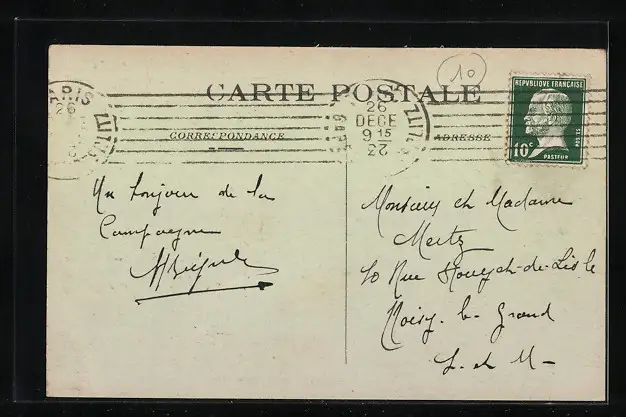 10
CARTE POSTALE
CORRESPONDANCE
ADRESSE
PARIS
26
26
DECE
9 15
23
REPUBLIQUE FRANÇAISE
10c
POSTES
PASTEUR
Un bonjour de la
Campagne
Monsieur et Madame
Mertz
10 Rue Rouget-de-Lisle
Noisy-le-Grand
S. et M-